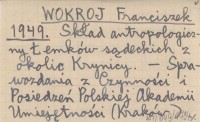 WOKROJ Franciszek
1949. Skład antropologicz-
ny Łemków sądeckich z
okolic Krynicy. — Spra-
wozdania z Czynności i
Posiedzeń Polskiej Akademii
Umiejętności (Kraków)